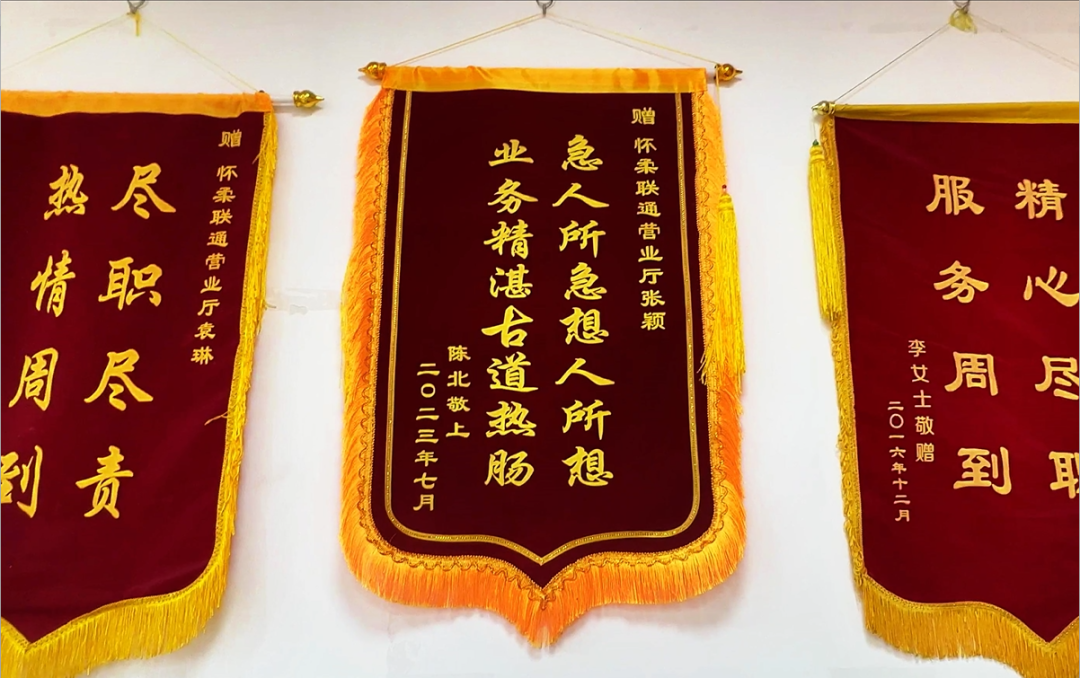 赠 怀柔联通营业厅袁琳
尽职尽责
热情周到
赠 怀柔联通营业厅张颖
急人所急想人所想
业务精湛古道热肠
陈北敬上
二〇二三年七月
精心尽职
服务周到
李女士敬赠
二〇一六年十二月